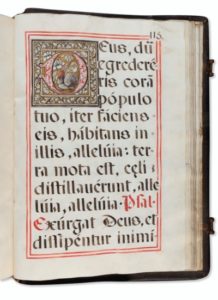 115.
DEus, dū
egrederé
ris corā
pópulo
tuo, iter fáciens
eis, hábitans in
illis, allelúia: ter
ra mota est, cęli
distillavérunt, alle
lúia, allelúia. Psal.
Exúrgat Deus, et
dissipentur inimí